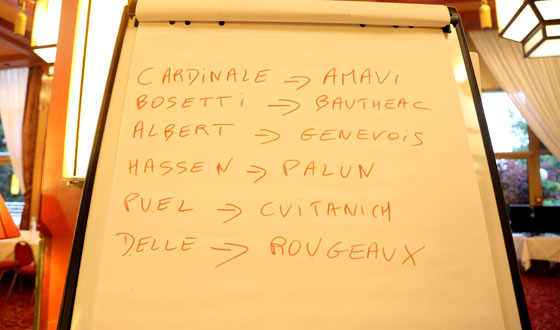 CARDINALE → AMAVI
BOSETTI → BAUTHEAC
ALBERT → GENEVOIS
HASSEN → PALUN
PUEL → CVITANICH
DELLE → ROUGEAUX